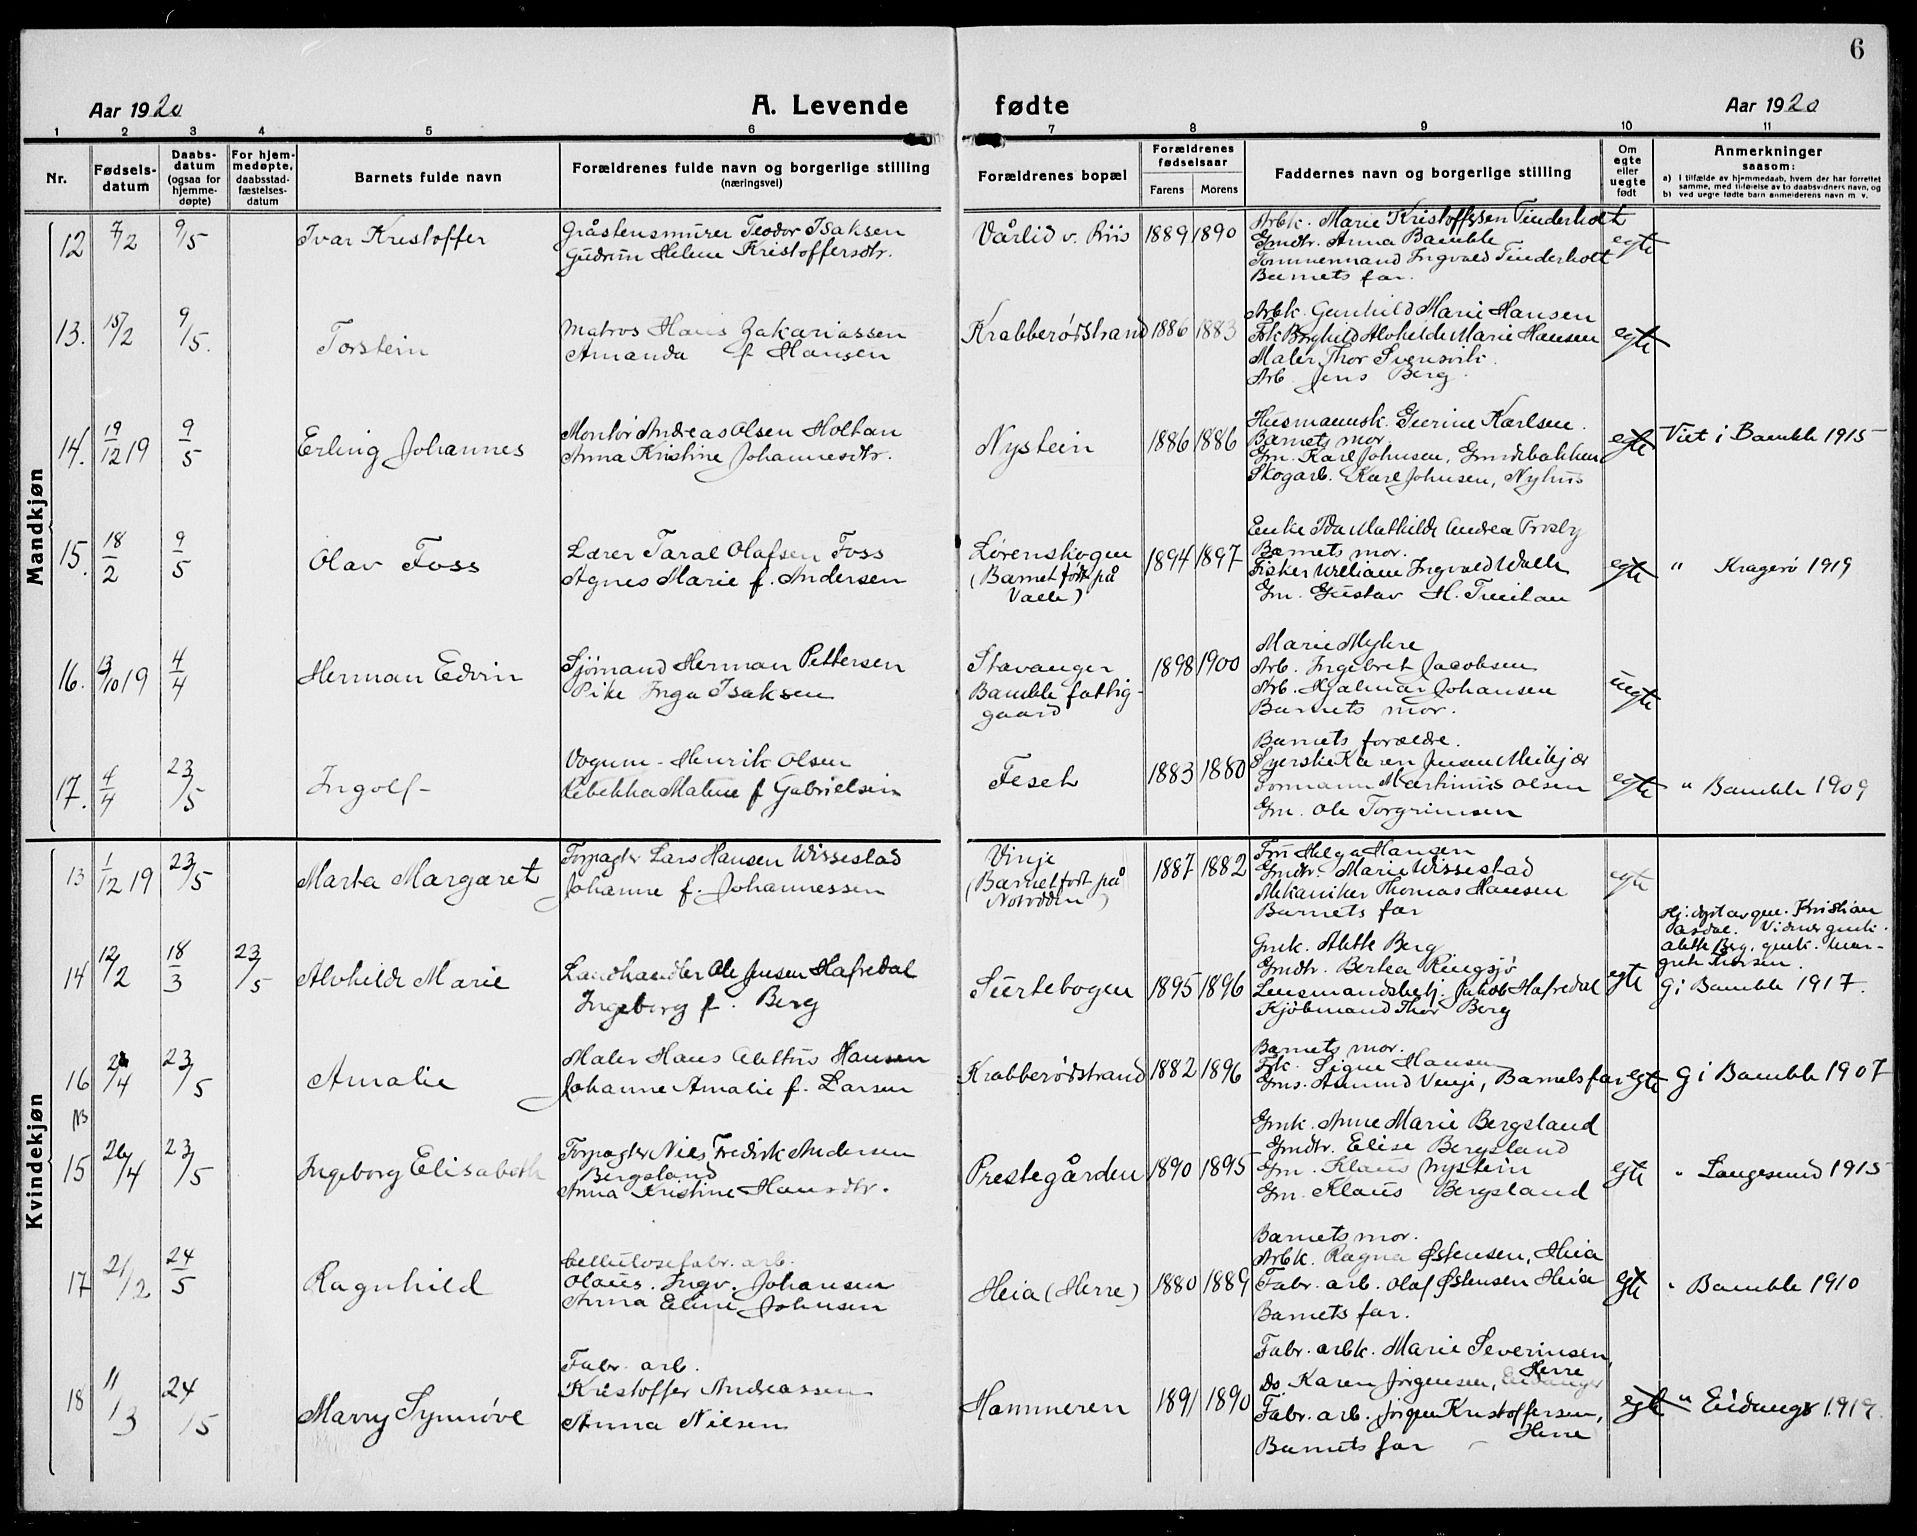 6
Aar 1920
A. Levende fødte
Aar 1920
1 2 3 4 5 6 7 8 9 10 11
Nr.
Fødsels-
datum
Daabs-
datum
(ogsaa for
hjemme-
døpte)
For hjem-
medøpte,
daabsstad-
fæstelses-
datum
Barnets fulde navn
Forældrenes fulde navn og borgerlige stilling
(næringsvei)
Forældrenes bopæl
Forældrenes
fødselsaar
Farens Morens
Faddernes navn og borgerlige stilling
Om
egte
eller
uegte
født
Anmerkninger
saasom:
a) I tilfælde av hjemmedaab, hvem der har forrettet
samme, med tilføielse av to daabsvidners navn, og
b) ved uegte fødte barn anmelderens navn m. v.
Mandkjøn
12 7/2 9/5 Ivar Kristoffer
Gråstensmurer Teodor Isaksen
Gudrun Helene Kristoffersdtr.
Vårlid v. Riis 1889 1890
Arbk. Marie Kristoffersen Tinderholt
Gmdtr. Anna Bamble
Tømmermand Ingvald Tinderholt
Barnets far.
egte
13. 15/2 9/5. Torstein
Matros Hans Zakariassen
Amanda f Hansen
Krabberødstrand 1886 1883
Arbk. Gunhild Marie Hansen
Frk Borghild Alvhilde Marie Hansen
Maler Thor Svensvik.
Arb. Jens Berg.
egte
14. 19/12 19 9/5 Erling Johannes
Montør Andreas Olsen Holtan
Anna Kristine Johannesdtr.
Nystein 1886 1886
Husmannsk. Geerine Karlsen.
Barnets mor
Gm. Karl Johnsen, Grindbakken
Skogarb. Karl Johnsen, Nyhus
egte
Viet i Bamble 1915
15. 18/2 9/5 Olav Foss
Lærer Taral Olafsen Foss
Agnes Marie f. Andersen
Lørenskogen
(Barnet født på
Valle)
1894 1897
Enke Ida Mathilde Andrea Frosby
Barnets mor.
Fisker William Ingvald Walle
Gm. Gustav H. Tveitan
egte
" Kragerø 1919
16. 13/10 19 4/4 Herman Edvin
Sjømand Herman Pettersen
Pike Inga Isaksen
Stavanger
Bamble fattig-
gaard
1898 1900
Marie Myhre
Arb. Ingebret Jacobsen
Arb. Hjalmar Johansen
Barnets mor.
uegte
17. 4/4 23/5 Ingolf
Vognm. Henrik Olsen
Rebekka Matine f Gabrielsen
Feset 1883 1880
Barnets forældre.
Syerske Karen Jensen Meikjær
Formann Martinius Olsen
Gm. Ole Torgrimsen
egte
" Bamble 1909
Kvindekjøn
13 1/12 19 23/5 Marta Margaret
Forpagter Lars Hansen Wissestad
Johanne f. Johannessen
Vinje
(Barnet født på
Notodden)
1887 1882
Fru Helga Hansen
Gmdtr. Marie Wissestad
Mekaniker Thomas Hansen
Barnets far
egte
14 12/2 18/3 23/5 Alvhilde Marie
Landhandler Ole Jensen Hafredal
Ingeborg f. Berg
Surtebogen 1895 1896
Gmk. Alette Berg
Gmdtr. Bertea Ringsjø
Lensmandsbetj. Jakob Hafredal
Kjøbmand Thor Berg
egte
Hj. døpt av gm. Kristian
Aasdal. Vidner gmk.
Alette Berg, gmk. Mar-
grete Thorsen.
G i Bamble 1917.
16 28/4 23/5 Amalie
Maler Hans Alettus Hansen
Johanne Amalie f. Larsen
Krabberødstrand 1882 1896
Barnets mor.
Frk. Signe Hansen
Gms. Amund Vinje, Barnets far
egte
G i Bamble 1907
NB
15 26/4 23/5 Ingeborg Elisabeth
Forpagter Niels Fredrik Andersen
Bergsland
Anna Kristine Hansdtr.
Prestegården 1890 1895
Gmk. Anne Marie Bergsland
Gmdtr. Elise Bergsland
Gm. Klaus Nystein
Gm. Klaus Bergsland
egte
" Langesund 1915
17 21/2 24/5 Ragnhild
Cellulosefabr. arb.
Olaus. Ingv. Johansen
Anna Eline Johnsen
Heia (Herre) 1880 1889
Barnets mor.
Arbk. Ragna Østensen, Heia
Fabr. arb. Olaf Østensen Heia
Barnets far.
egte
" Bamble 1910
18 11/3 24/5 Marry Synnøve
Fabr. arb.
Kristoffer Andreassen
Anna Nilsen
Hammeren 1891 1890
Fabr. arbk. Marie Severinsen,
Herre
Do. Karen Jörgensen, Eidanger
Fabr. arb. Jörgen Kristoffersen,
Herre
Barnets far
egte
" Eidanger 1919.